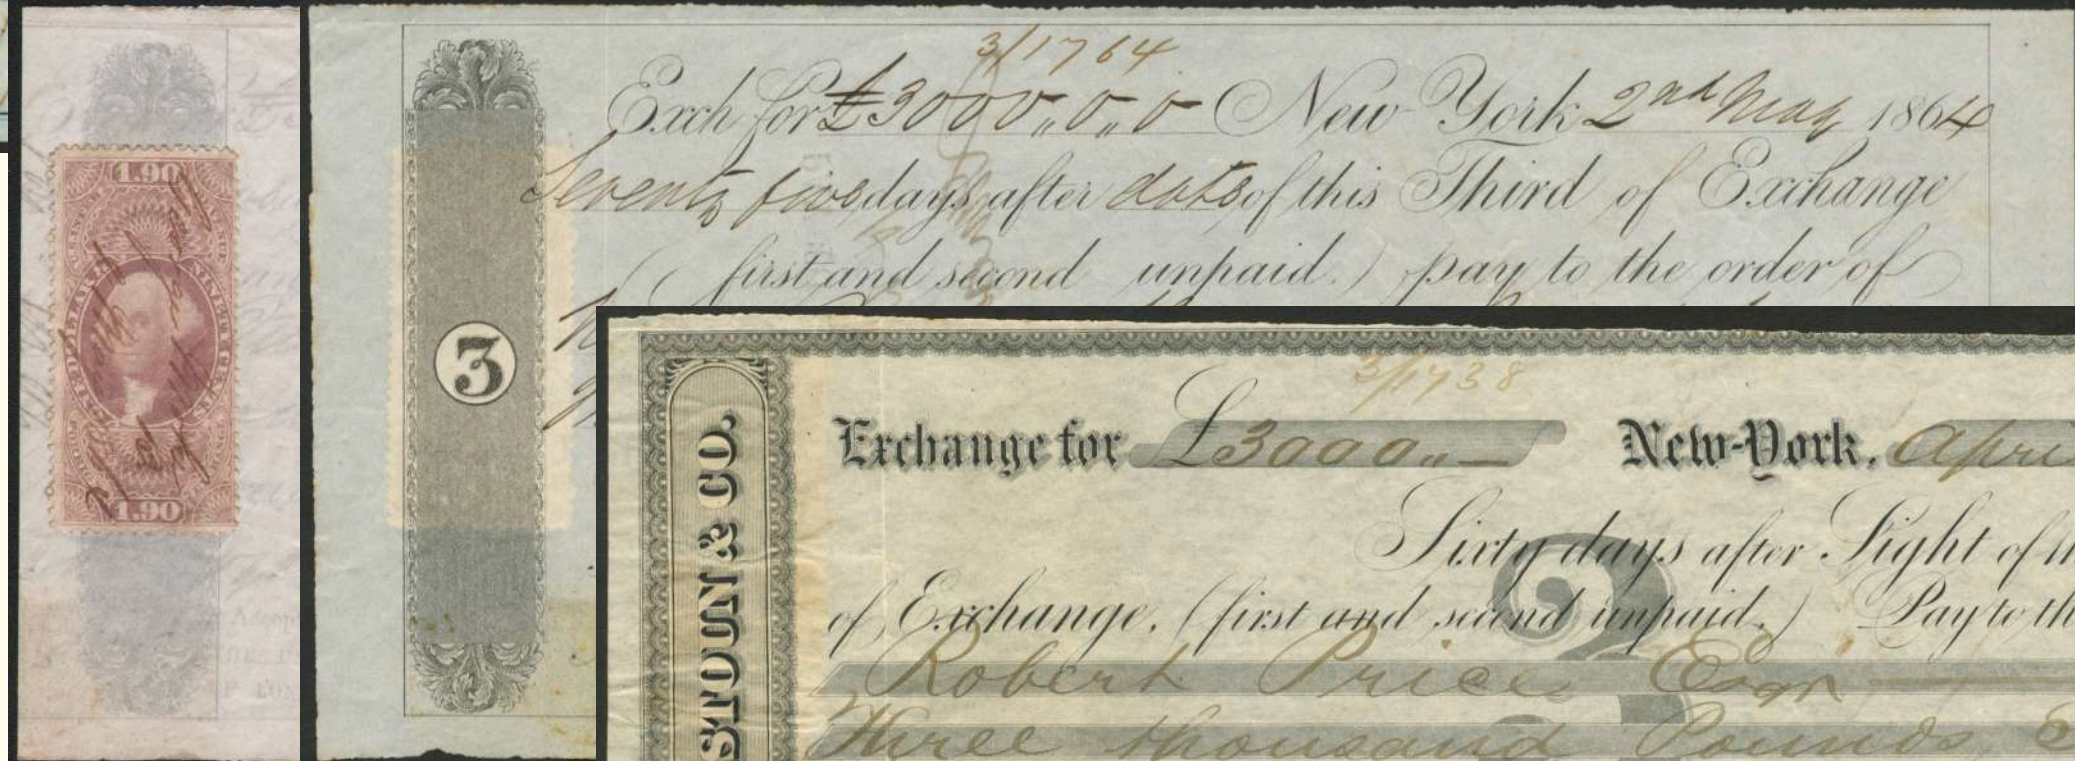 1.90
1.90
3/1764
Exch for £3000,,0,,0 New-York 2nd May 1864
Seventy five days after date of this Third of Exchange
(first and second unpaid.) pay to the order of
3
3/1738
Exchange for £3000,,— New-York, Apri
Sixty days after Sight of th
of Exchange, (first and second unpaid.) Pay to th
Robert Price Esqr
Three thousand Pounds S
3
STOUN & CO.